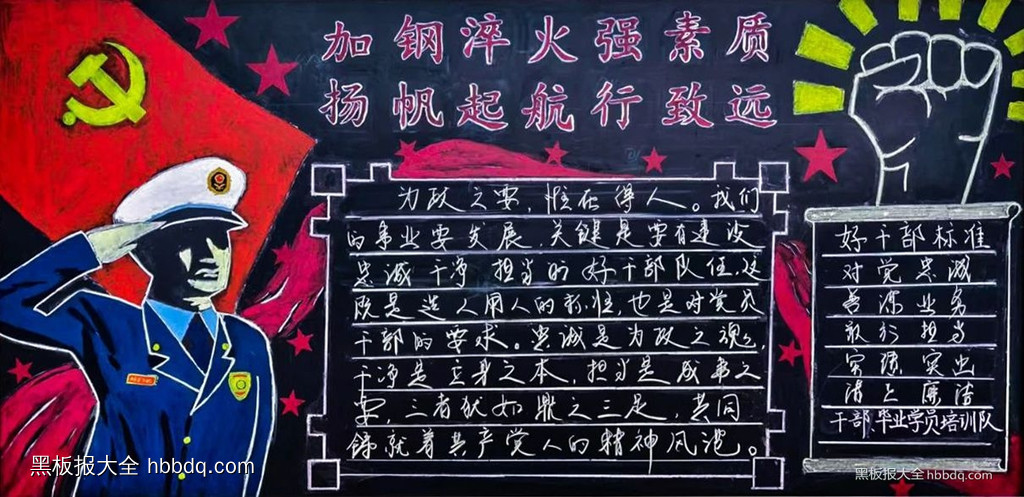 加钢淬火强素质
扬帆起航行致远
为政之要,惟在得人。我们
的事业要发展,关键是要有建设
忠诚干净担当的好干部队伍,这
既是选人用人的标准,也是对党员
干部的要求。忠诚是为政之魂,
干净是立身之本,担当是成事之
要,三者犹如鼎之三足,共同
铸就着共产党人的精神风范。
好干部标准
对党忠诚
善谋业务
敢于担当
实绩突出
清正廉洁
干部毕业学员培训队
黑板报大全 hbbdq.com
黑板报大全 hbbdq.com